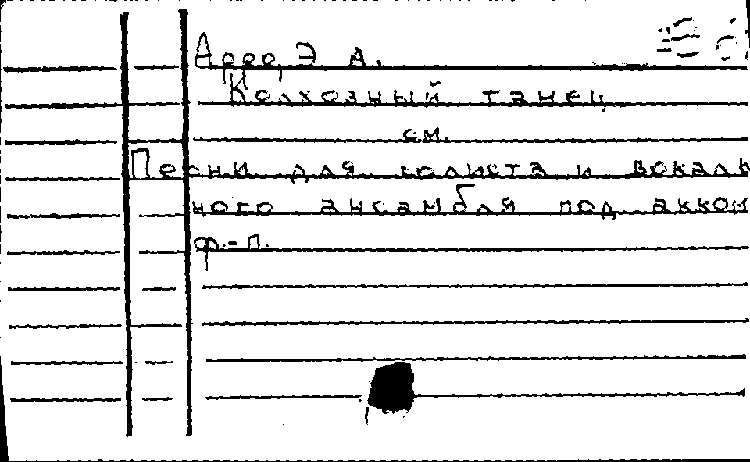 Арро, Э. А.
Колхозный танец
см.
Песни для солиста и вокаль
ного ансамбля под акком
ф.-п.